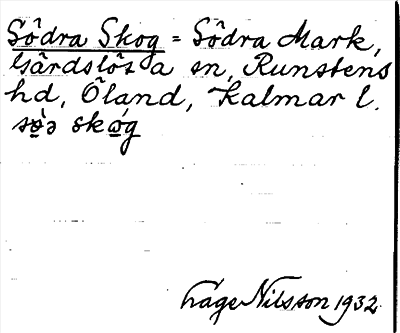 Södra Skog = Södra Mark,
Gårdslösa sn, Runstens
hd, Öland, Kalmar l.
sø̀ə skǿg
Tage Nilsson 1932